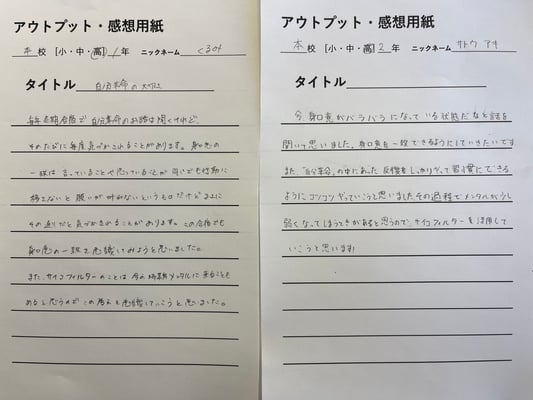 アウトプット・感想用紙
本 校 [小・中・高] 1 年 ニックネーム くるみ
タイトル 自分革命の大切さ
毎年冬期合宿で自分革命のお話は聞くけれど、
そのたびに毎度気づかされることがあります。身口意の
一致は言っていることや思っていることが良いでも行動に
移さないと願いが叶わないというものだけどまさに
その通りだと気づかされることがあります。この合宿でも
身口意の一致を意識してみようと思いました。
また、サイコフィルターのことは今の時期メンタルに来ることも
あると思うのでこの考えを意識していこうと思いました。
アウトプット・感想用紙
本 校 [小・中・高] 2 年 ニックネーム サトウ アキ
タイトル
今、身口意がバラバラになっている状態だなと話を
聞いて思いました。身口意を一致できるようにしていきたいです
また、"自分革命"の中にあった反復をしっかりやって習慣にできる
ようにコツコツやっていこうと思いましたその過程でメンタルが少し
弱くなってしまうときがあると思うので、サイコフィルターを活用して
いこうと思います!